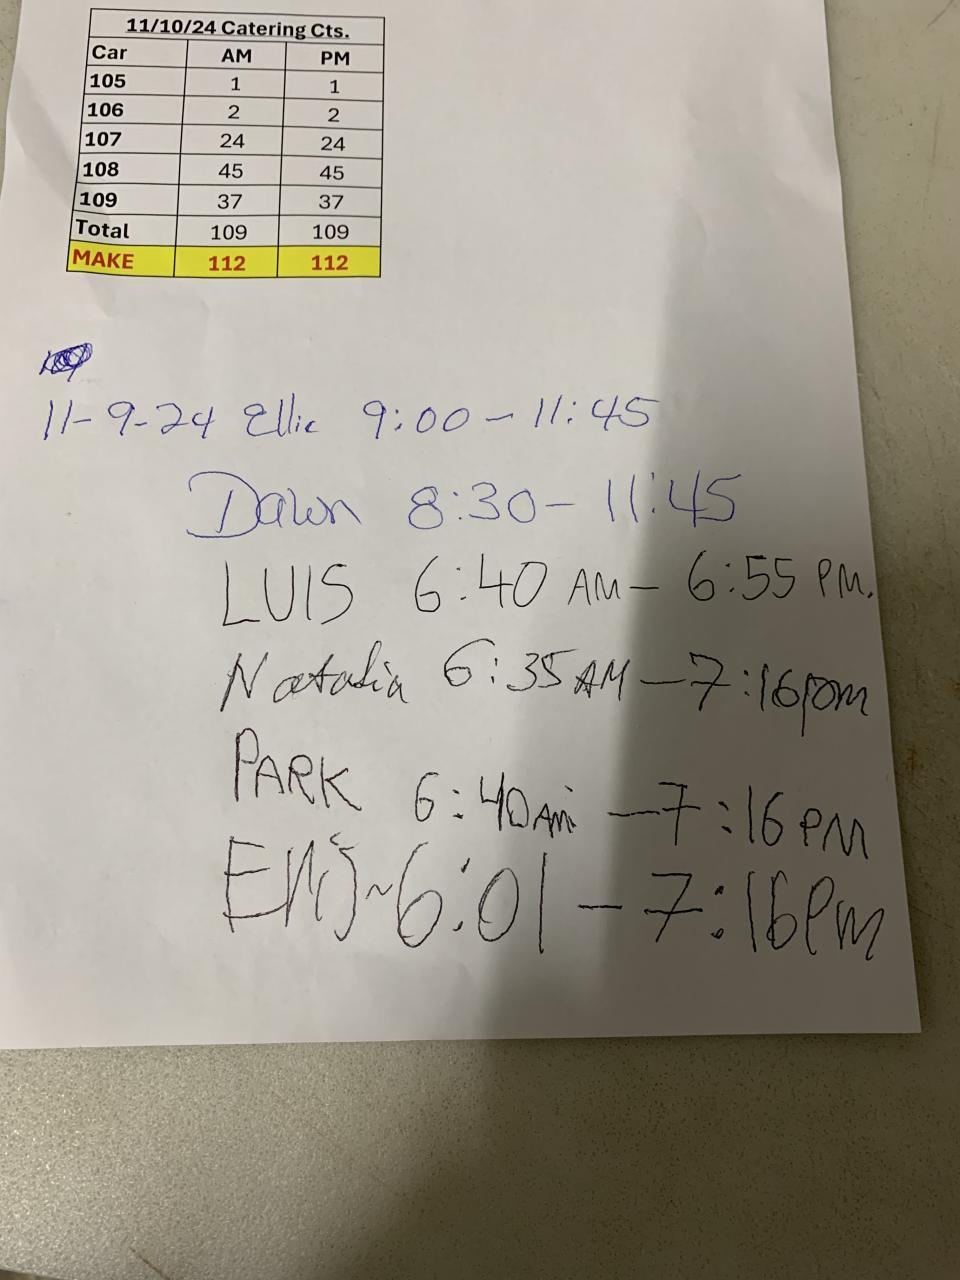 11/10/24 Catering Cts.
Car AM PM
105 1 1
106 2 2
107 24 24
108 45 45
109 37 37
Total 109 109
MAKE 112 112
11-9-24 Ellie 9:00 - 11:45
Dawn 8:30 - 11:45
LUIS 6:40 AM - 6:55 PM.
Natalia 6:35 AM - 7:16 pm
PARK 6:40 AM - 7:16 PM
~6:01 - 7:16 Pm